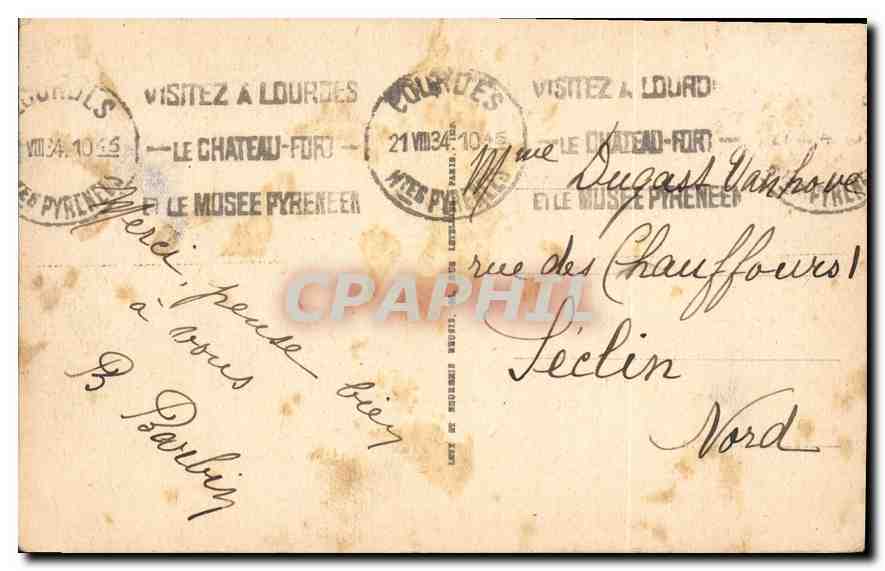 LOURDES
VIII 34. 10 45
HTES PYRENEES
VISITEZ A LOURDES
LE CHATEAU-FORT
ET LE MUSEE PYRENEEN
LOURDES
21 VIII 34. 10 45
HTES PYRENEES
VISITEZ A LOURDES
LE CHATEAU-FORT
ET LE MUSEE PYRENEEN
Merci, pense bien
à vous
B Barbin
LEVY ET NEURDEIN REUNIS, PARIS
Mme Dugast Vanhove
rue des Chauffours
Séclin
Nord
CPAPHIL